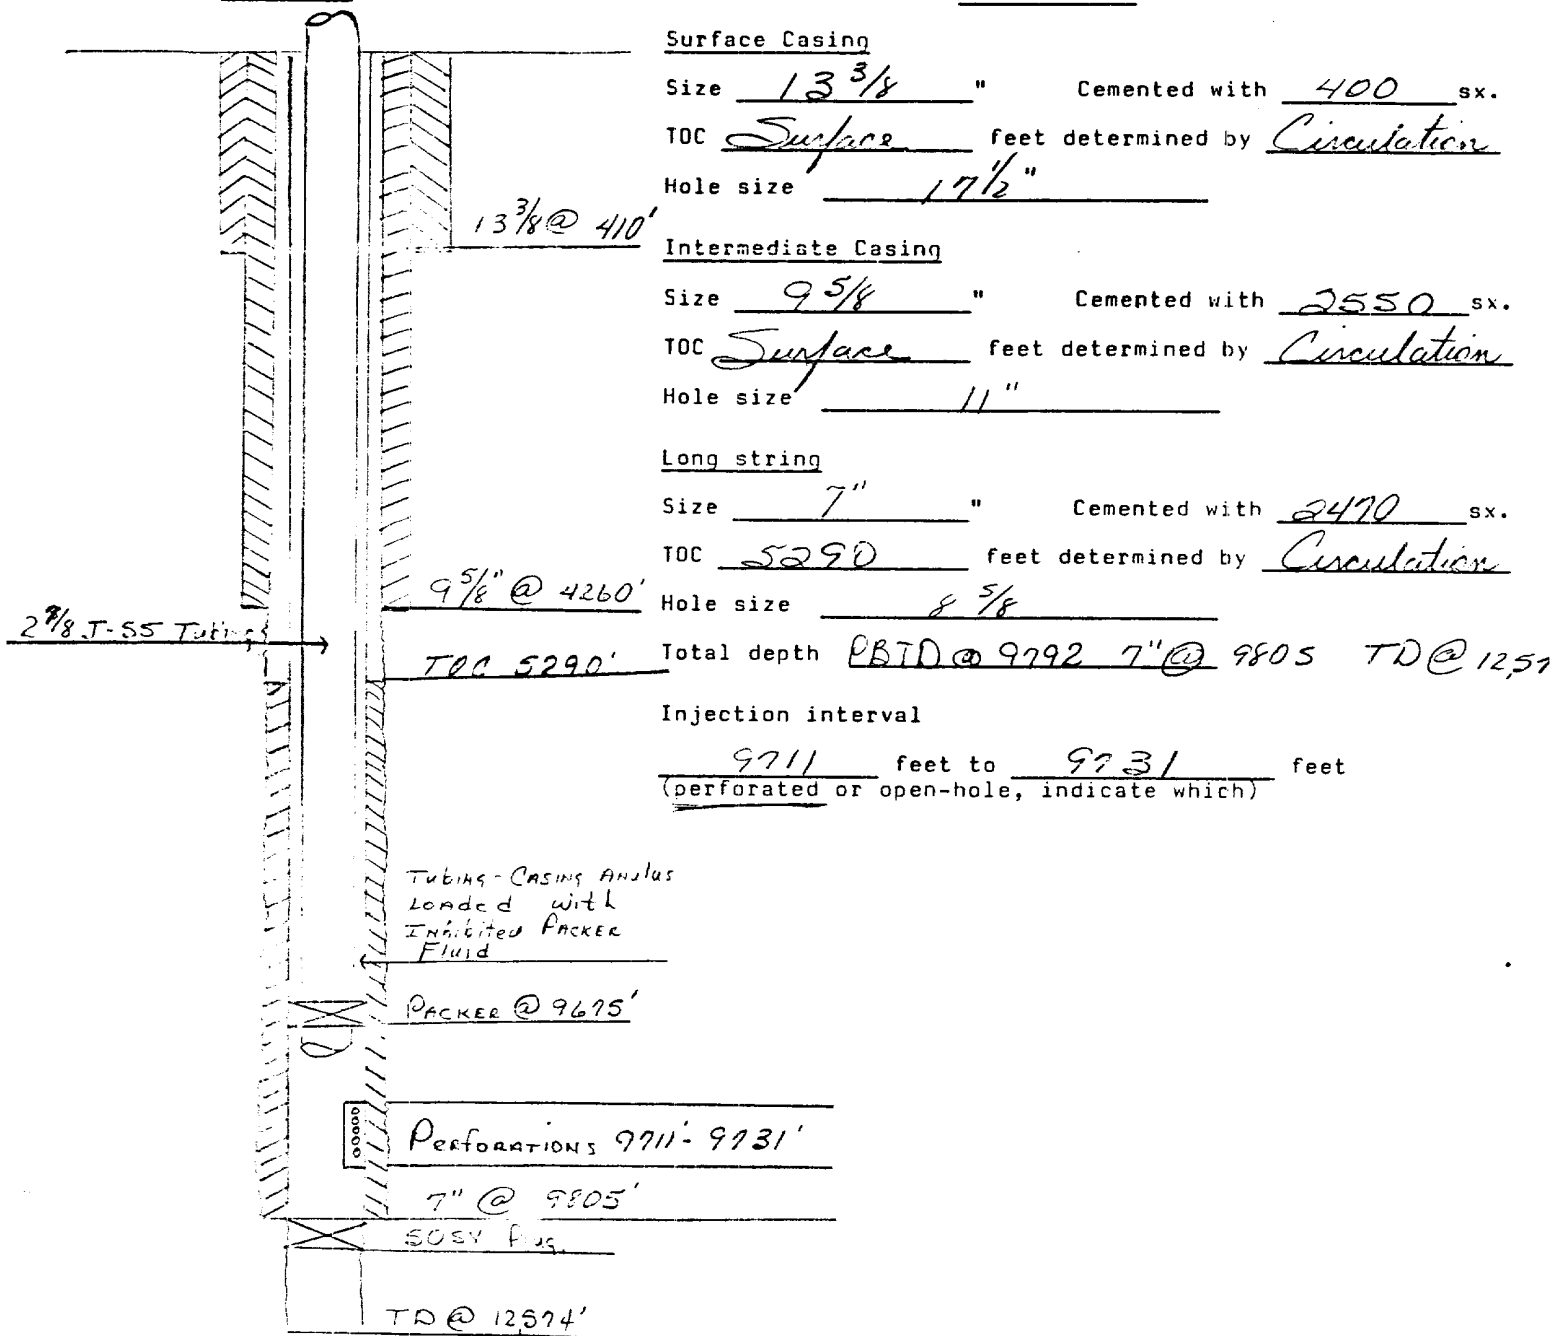 Surface Casing
Size 13 3/8 " Cemented with 400 sx.
TOC Surface feet determined by Circulation
Hole size 17 1/2 "
13 3/8 @ 410'
Intermediate Casing
Size 9 5/8 " Cemented with 2550 sx.
TOC Surface feet determined by Circulation
Hole size 11 "
Long string
Size 7" " Cemented with 2470 sx.
TOC 5290 feet determined by Circulation
9 5/8" @ 4260'
Hole size 8 5/8
J-55 Tubing
TOC 5290'
Total depth PBTD @ 9792 7" @ 9805 TD @ 12,57
Injection interval
9711 feet to 9731 feet
(perforated or open-hole, indicate which)
Tubing-Casing Anulus
Loaded with
Inhibited Packer
Fluid
Packer @ 9675'
Perforations 9711'-9731'
7" @ 9805'
Plug
TD @ 12574'